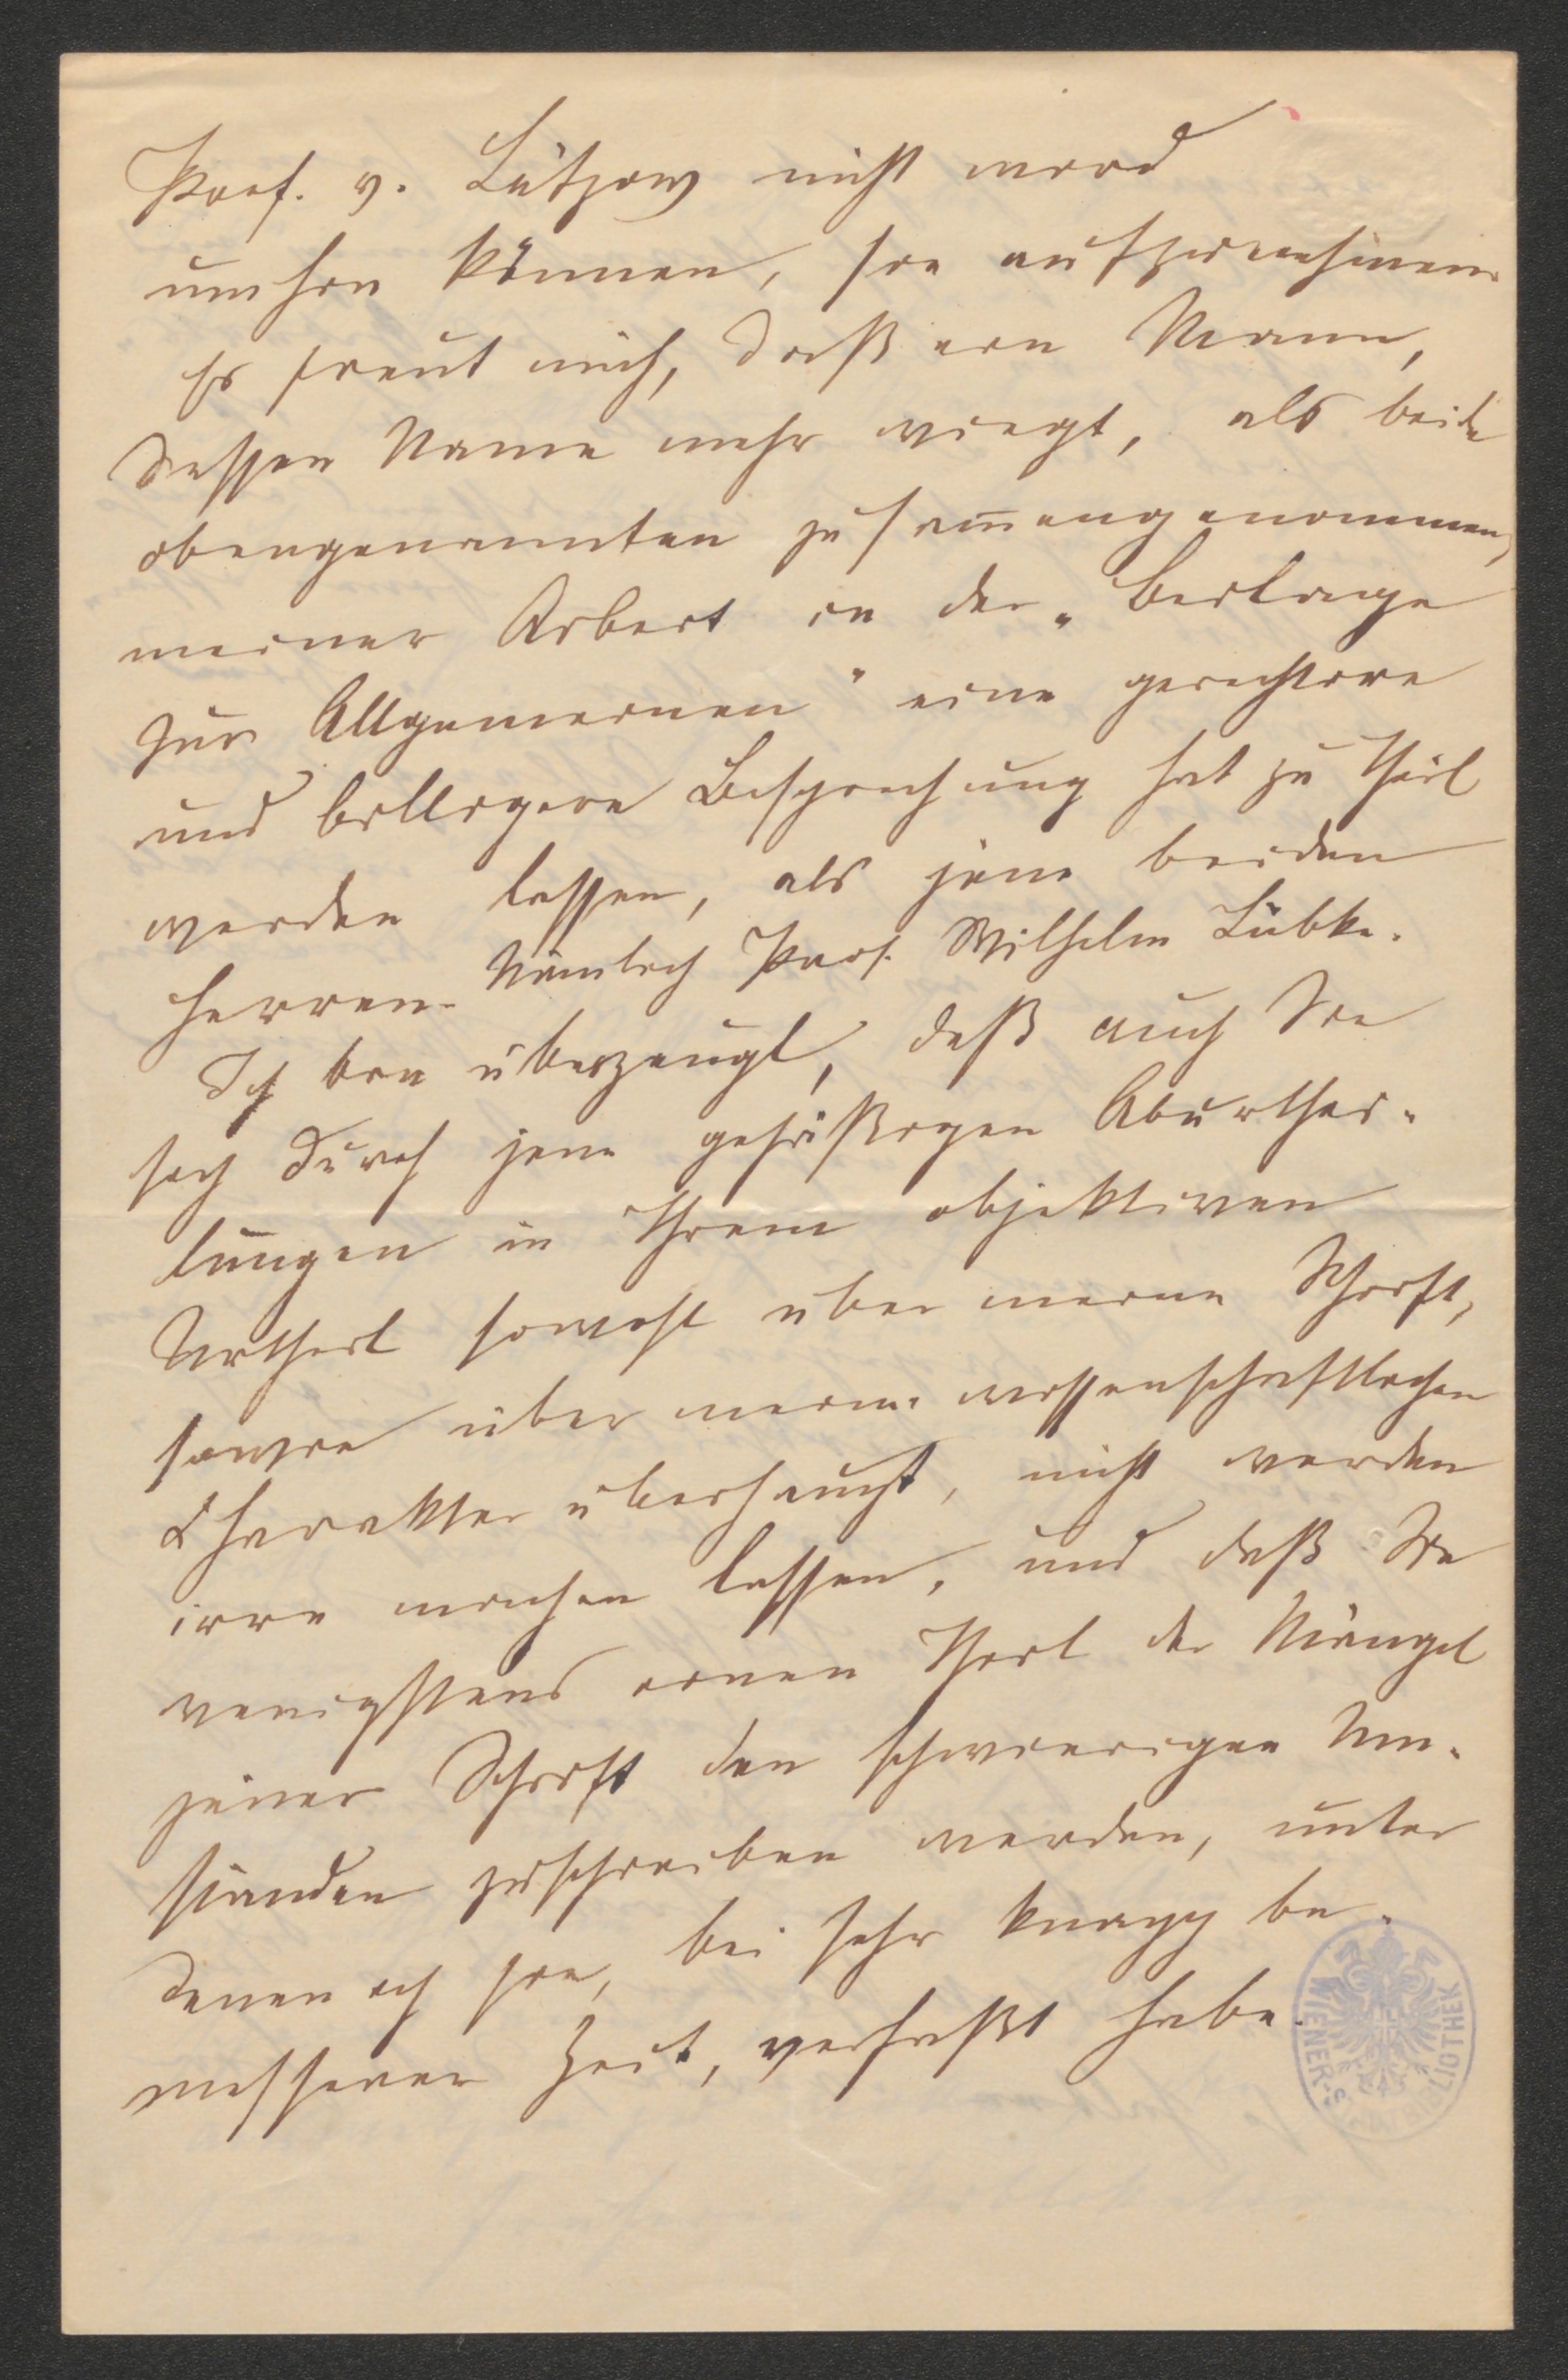 Prof. v. Lützow nicht wird
umhin können, sie aufzunehmen.
Es freut mich, daß ein Mann,
dessen Name mehr wiegt, als beide
obengenannten zusam̅engenommen,
meiner Arbeit in der „Beilage
zur Allgemeinen" eine gerechtere
und billigere Besprechung hat zu Theil
werden lassen, als jene beiden
Herren. Nämlich Prof. Wilhelm Lübke.
Ich bin überzeugt, daß auch Sie
sich durch jene gehäßigen Aburthei-
lungen in Ihrem objektiven
Urtheil sowohl über meine Schrift,
sowie über meinen wissenschaftlichen
Charakter überhaupt, nicht werden
irre machen lassen, und daß Sie
wenigstens einen Theil der Mängel
jener Schrift den schwierigen Um-
ständen zuschreiben werden, unter
denen ich sie, bei sehr knapp be-
messener Zeit, verfaßt habe.
WIENER STADTBIBLIOTHEK